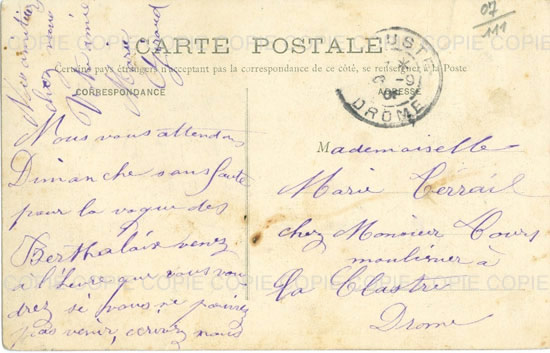 07
111
CARTE POSTALE
Certains pays étrangers n'acceptent pas la correspondance de ce côté, se renseigner à la Poste
CORRESPONDANCE
ADRESSE
DROME
Nous vous attendons
Dimanche sans faute
pour la vogue des
Berthalaix venez
à l'heure que vous vou
drez si vous ne pouvez
pas venir, ecrivez nous
chez nous
Votre amie
Marie
Mademoiselle
Marie Terrail
chez Monsieur Cours
moulinier à
La Clastre
Drome
COPIE COPIE COPIE COPIE COPIE COPIE